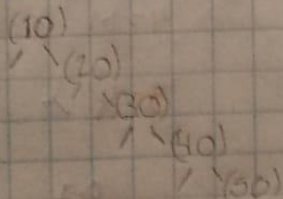 (10)
(20)
(30)
(40)
(50)